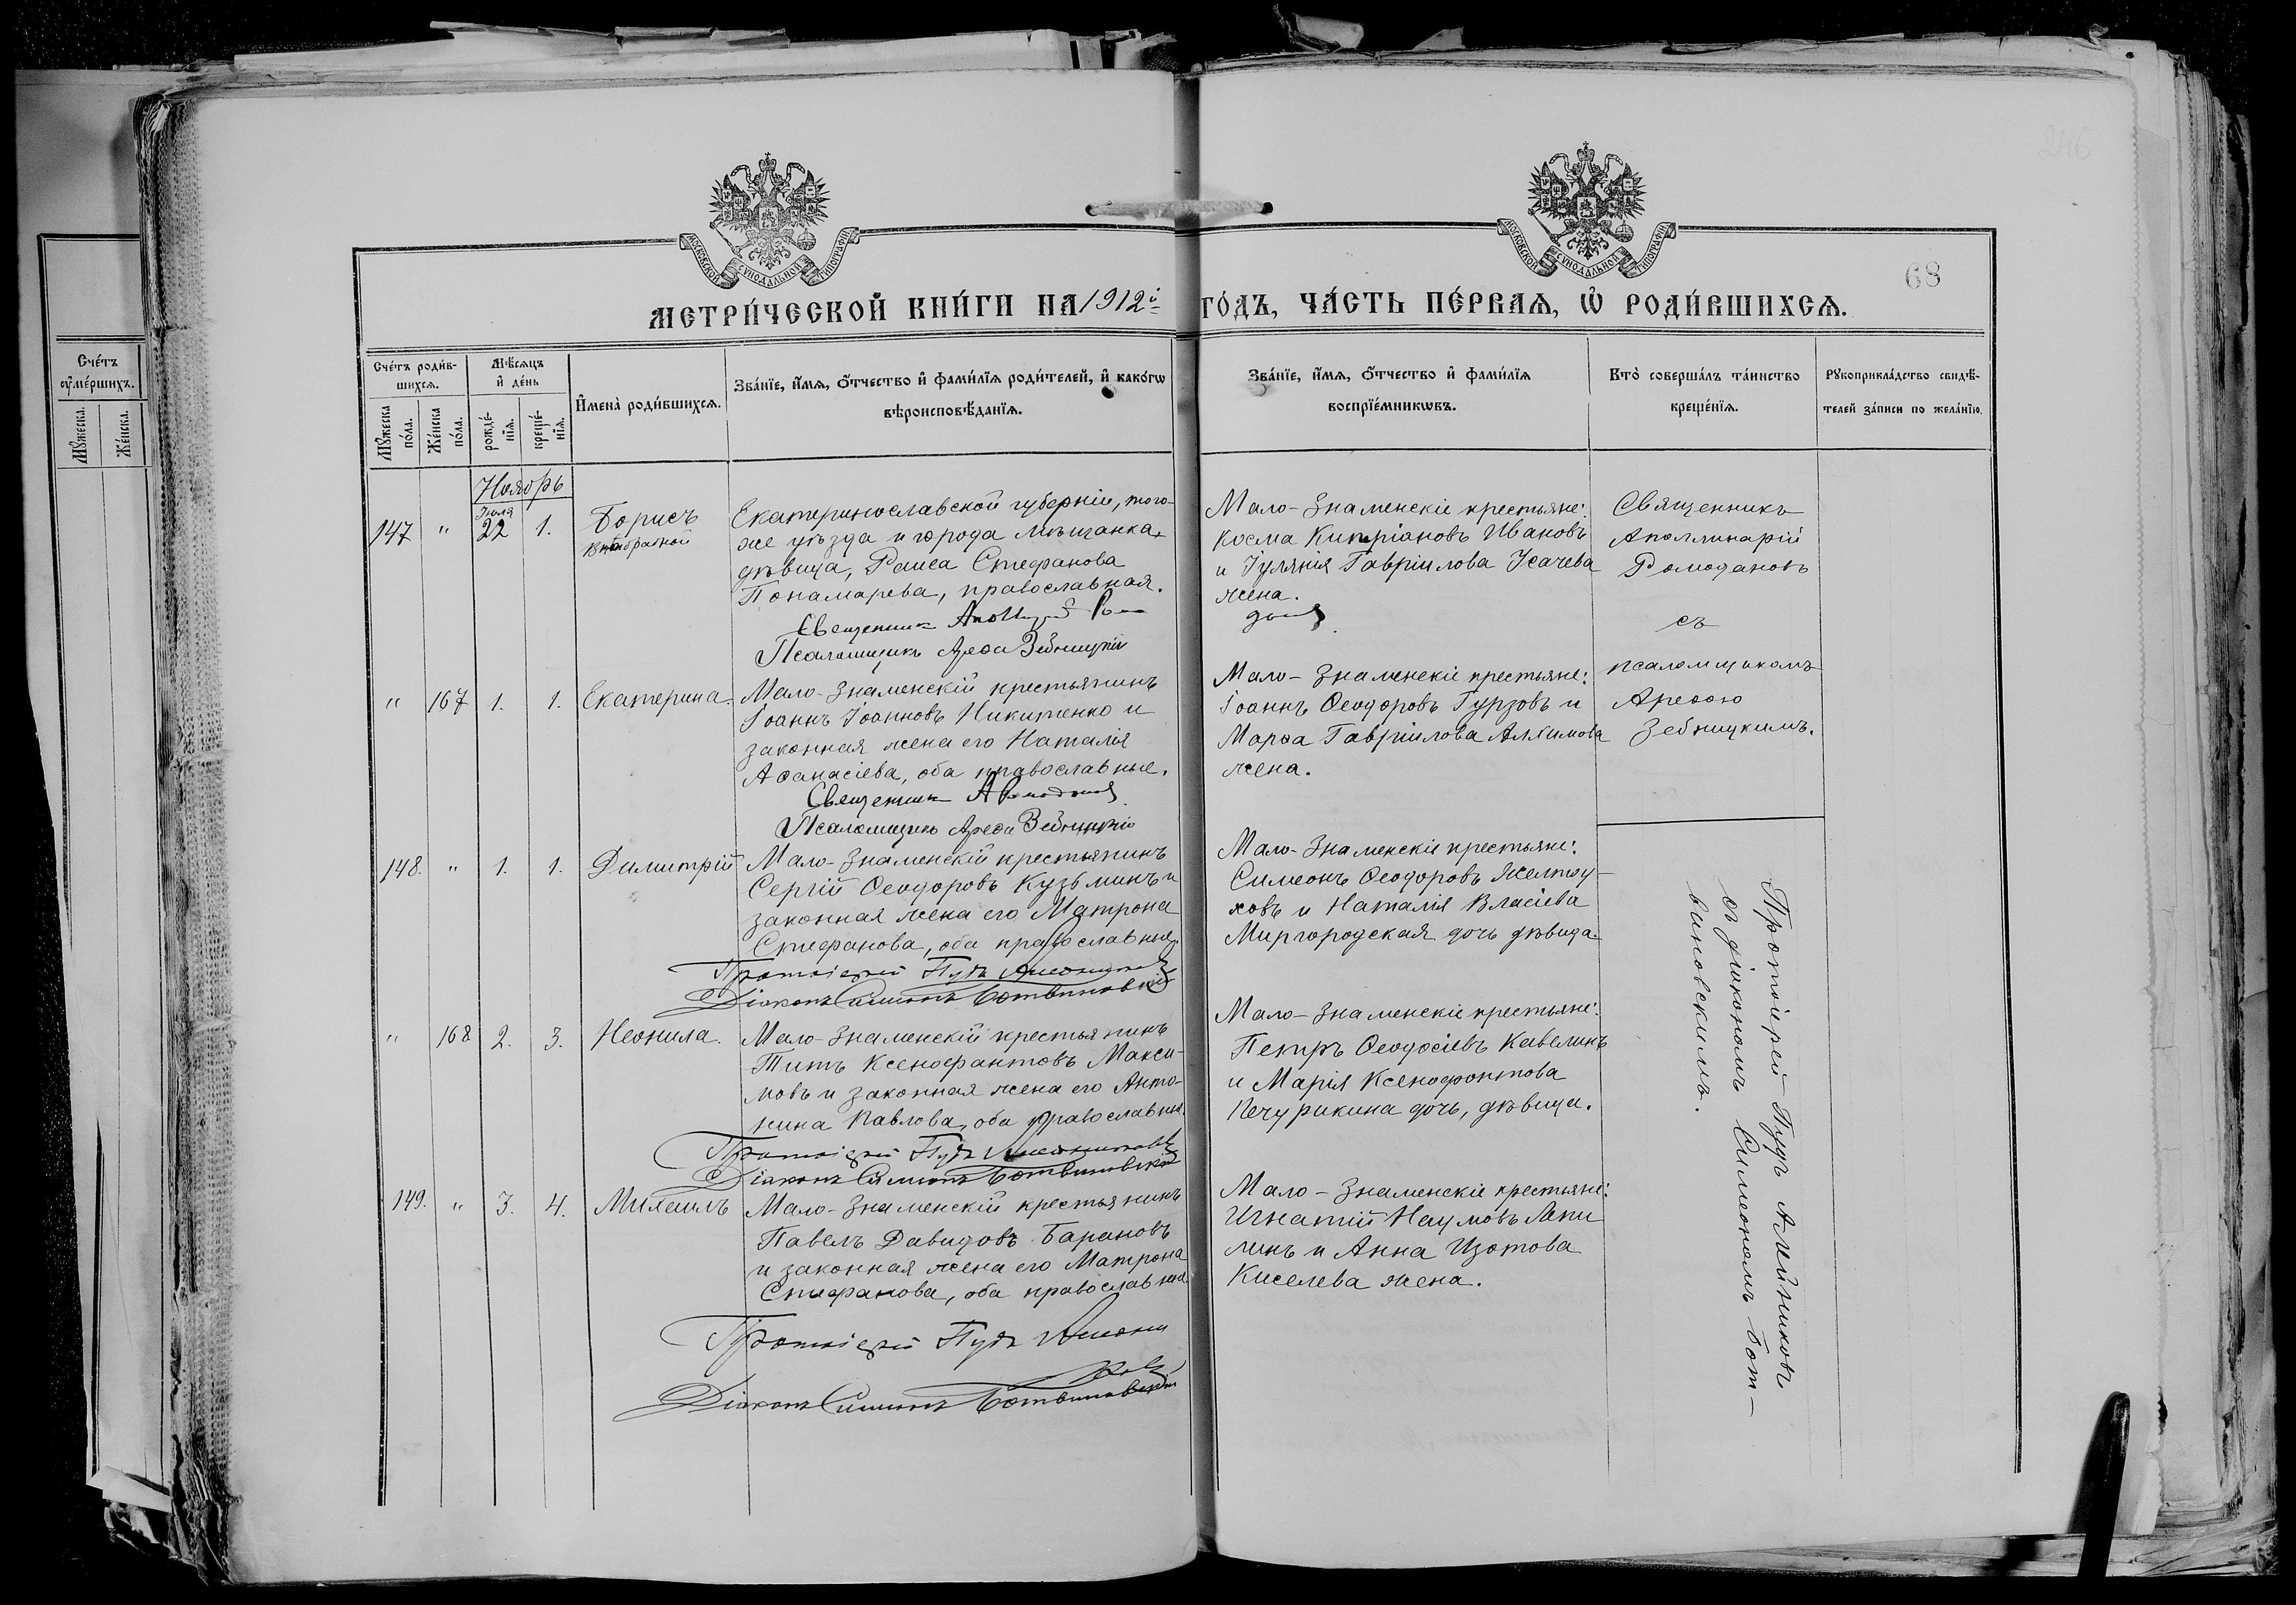 68
Счетъ ѹмершихъ.
Мѹжеска.
Женска.
МОСКОВСКОЙ СѴНОДАЛЬНОЙ ТИПОГРАФІИ
МОСКОВСКОЙ СѴНОДАЛЬНОЙ ТИПОГРАФІИ
МЕТРИ́ЧЕСКОЙ КНИ́ГИ НА 1912й ГО́ДЪ, ЧА́СТЬ ПЕ́РВАЯ, Ѡ РОДИ́ВШИХСЯ.
Сче́тъ роди́в-
шихся.
Мѹжеска
по́ла.
Же́нска
по́ла.
Мѣ́сяцъ
и де́нь
рожде́-
нїя.
креще́-
нїя.
Имена̀ роди́вшихся.
Зва́нїе, и́мя, о́тчество и фами́лїя роди́телей, и како́гѡ
вѣроисповѣ́данїя.
Зва́нїе, и́мя, о́тчество и фами́лїя
воспрїе́мникѡвъ.
Кто̀ соверша́лъ та́инство
креще́нїя.
Рѹкоприкла́дство свидѣ́-
телей за́писи по жела́нїю.
Ноябрь
147
"
Іюля
22
1.
Борисъ
внѣбрачной
Екатеринославской губерніи, того-
же уѣзда и города мѣщанка,
дѣвица, Раиса Стефанова
Понамарева, православная.
Священник
Псаломщикъ Арефа Зебницкій
Мало-Знаменскіе крестьяне:
Косма Кипріановъ Ивановъ
и Іуліанія Гавріилова Усачева
жена.
Священникъ
Аполлинарій
Ромодановъ
съ
псаломщикомъ
Арефою
Зебницкимъ.
"
167
1.
1.
Екатерина.
Мало-Знаменскій крестьянинъ
Іоаннъ Іоанновъ Никитенко и
законная жена его Наталія
Аѳанасіева, оба православные.
Священник
Псаломщикъ Арефа Зебницкій
Мало-Знаменскіе крестьяне:
Іоаннъ Ѳеодоровъ Гурзовъ и
Марѳа Гавріилова Алхимова
жена.
148.
"
1.
1.
Димитрій
Мало-Знаменскій крестьянинъ
Сергій Ѳеодоровъ Кузьминъ и
законная жена его Матрона
Стефанова, оба православные.
Протоіерей Пудъ Алейниковъ
Діаконъ Симеонъ Ботвиновскій
Мало-Знаменскіе крестьяне:
Симеонъ Ѳеодоровъ Желтоу-
ховъ и Наталія Власіева
Миргородская дочь дѣвица.
Протоіерей Пудъ Алейниковъ
съ діакономъ Симеономъ Бот-
виновскимъ.
"
168
2.
3.
Неонила.
Мало-Знаменскій крестьянинъ
Титъ Ксенофантовъ Макси-
мовъ и законная жена его Анто-
нина Павлова, оба православны.
Протоіерей Пудъ Алейниковъ
Діаконъ Симеонъ Ботвиновскій
Мало-Знаменскіе крестьяне:
Петръ Ѳеодосіевъ Кавелинъ
и Марія Ксенофонтова
Печурикина дочь, дѣвица.
149.
"
3.
4.
Михаилъ
Мало-Знаменскій крестьянинъ
Павелъ Давидовъ Барановъ
и законная жена его Матрона
Стефанова, оба православные
Протоіерей Пудъ Алейни
ковъ
Діаконъ Симеонъ Ботвиновскій
Мало-Знаменскіе крестьяне:
Игнатій Наумовъ Лапи
линъ и Анна Изотова
Киселева жена.